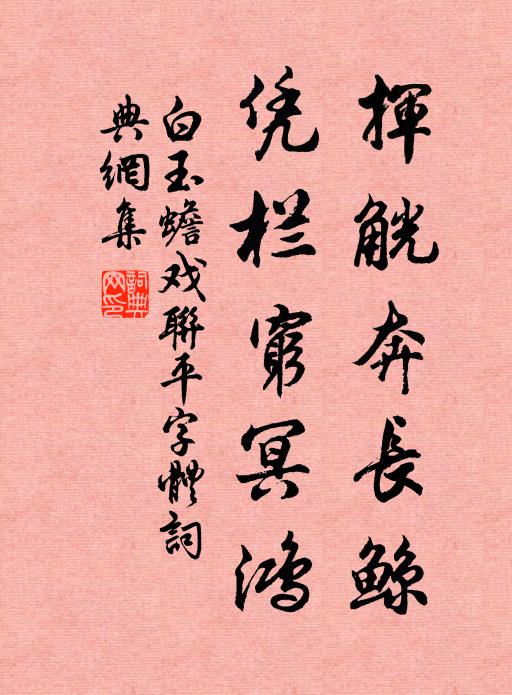 揮觥奔長鲸
凭栏窮冥鴻
白玉蟾戏聯平字體詞
典網集
詞典
网印